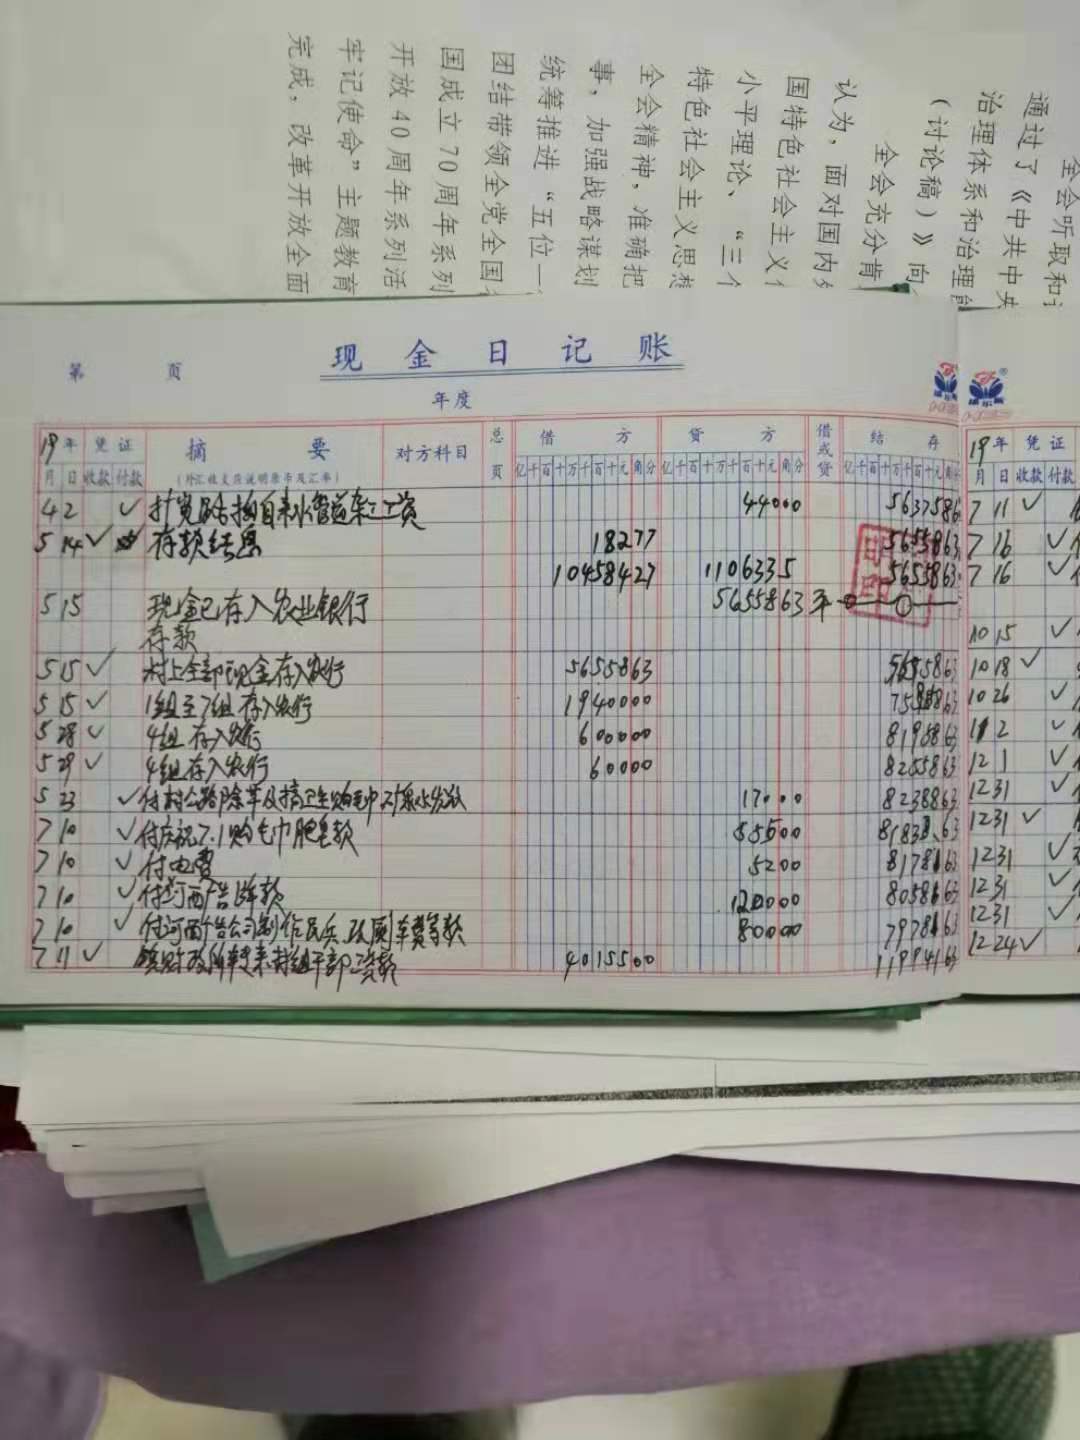 全会听取和讨
通过了《中共中央
治理体系和治理能
（讨论稿）》向
全会充分肯
认为，面对国内外
国特色社会主义
小平理论、“三个
特色社会主义思想
全会精神，准确把
事，加强战略谋划
统筹推进“五位一
团结带领全党全国
国成立70周年系列
开放40周年系列活
牢记使命”主题教育
完成，改革开放全面
第 页
现金日记账
年度
19年 凭证 摘要 对方科目 总页 借方 贷方 借或贷 结存
月 日 收款 付款 （外汇收支应说明原币及汇率） 亿千百十万千百十元角分 亿千百十万千百十元角分 亿千百十万千百十元角分
4 2 ✓ 自来水管道 工资 44000 5637586
5 14 ✓ 存款结息 18277 5655863
10458427 1106335 5655863
5 15 现金已存入农业银行 5655863 平 0
存款
5 15 ✓ 村上全部现金存入农行 5655863 5655863
5 15 ✓ 1组至7组存入农行 1940000 863
5 28 ✓ 4组存入农行 600000 8195863
5 29 ✓ 4组存入农行 60000 8255863
5 23 ✓ 付村公路除草及搞卫生购毛巾 17000 8238863
7 10 ✓ 付庆祝7.1购毛巾肥皂款 55500
7 10 ✓ 付电费 5200 8178163
7 10 ✓ 付河西广告 款 120000 8058163
7 10 ✓ 付河西广告公司制作民兵 车费等款 80000 7978163
7 11 ✓ 镇财政所转来村组干部工资款 4015500
19年 凭证
月 日 收款 付款
7 11 ✓
7 16 ✓
7 16 ✓
10 15 ✓
10 18 ✓
10 26 ✓
11 2 ✓
12 1 ✓
12 31 ✓
12 31 ✓
12 31 ✓
12 31 ✓
12 31 ✓
12 24 ✓